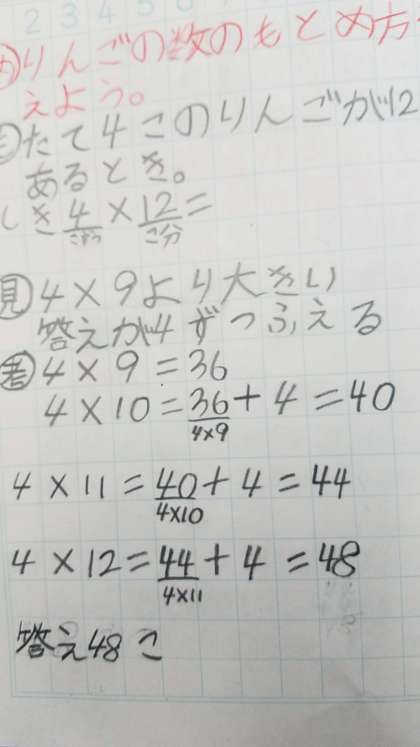 2 3 4 5
りんごの数のもとめ方
えよう。
たて4このりんごが12
あるとき。
しき4×12=
こずつ こ分
見 4×9より大きい
答えが4ずつふえる
考 4×9=36
4×10=36+4=40
4×9
4×11=40+4=44
4×10
4×12=44+4=48
4×11
答え48こ